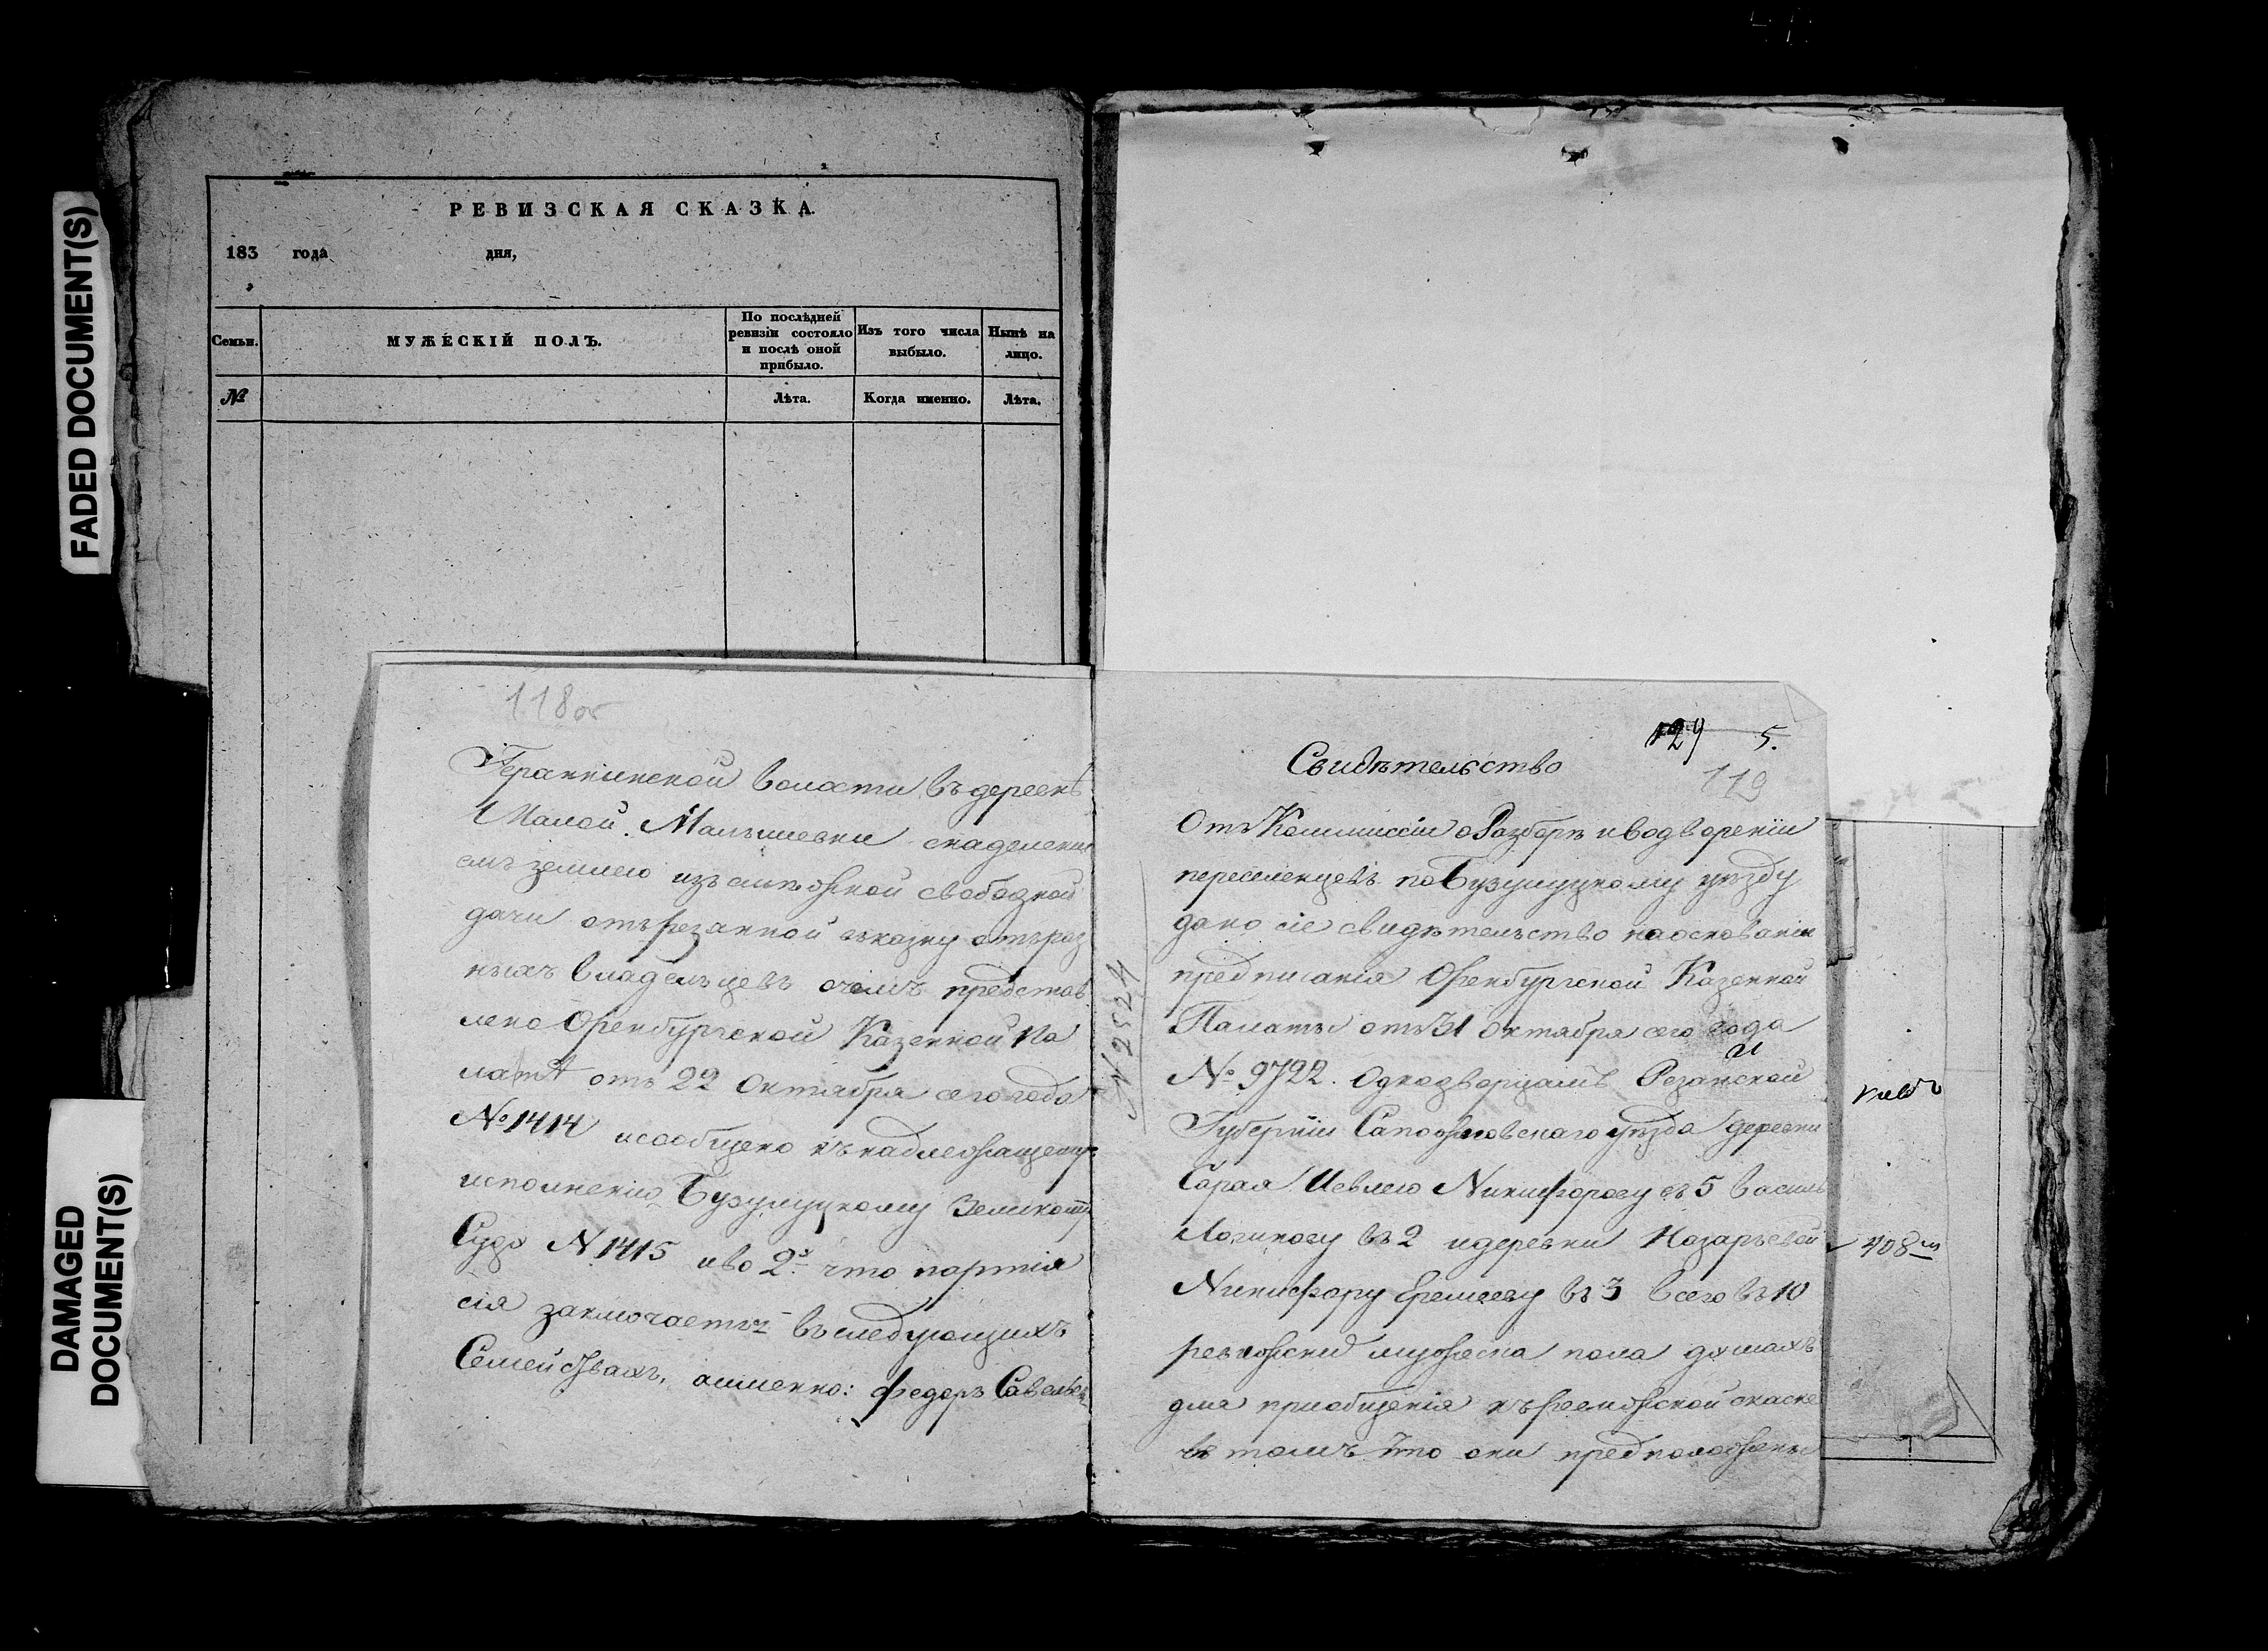 FADED DOCUMENT(S)
DAMAGED
DOCUMENT(S)
РЕВИЗСКАЯ СКАЗКА.
183 года дня,
Семьи.
МУЖЕСКІЙ ПОЛЪ.
По послѣдней
ревизіи состояло
и послѣ оной
прибыло.
Изъ того числа
выбыло.
Нынѣ на
лицо.
№
Лѣта.
Когда именно.
Лѣта.
118об
волости въ деревнѣ
Малой Малышевки снаделени
емъ землею изъ смѣжной свободной
дачи отърезанной въказну отъраз
ныхъ владельцевъ очемъ представ
лено Оренбургской Казенной Па
латѣ отъ 22 Октября сегогода
№ 1414 исообщено къ надлежащему
исполненію Бузулуцкому Земскому
Суду N 1415 иво 2х что партія
сія заключается въследующихъ
Семействахъ, аименно: Федоръ Савельев
129 5.
119
Свидѣтельство
Отъ Коммиссіи о Разборѣ иводвореніи
переселенцевъ по Бузулуцкому уѣзду
дано сіе свидѣтельство наоснованіи
предписанія Оренбургской Казенной
Палаты отъ 31 Октября сего года
№ 9722. Однодворцамъ Резанской
Губерніи Сапожковского уѣзда деревни
Сарая Иевлею Никифорову въ 5 Василь
Логинову въ 2 идеревни Назарьевой
Никифору Еремееву въ 3 всего въ 10
ревижских мужеска пола душахъ
для приобщенія къ ревижской скаске
въ томъ что они предположены
N 2524
408